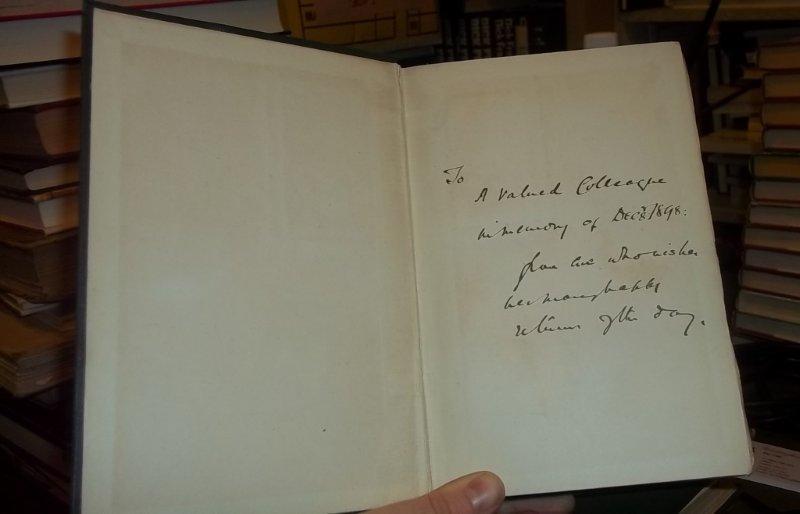 To
A Valued Colleague
in memory of Dec 1898:
from one who wishes
her many happy
returns of the day.